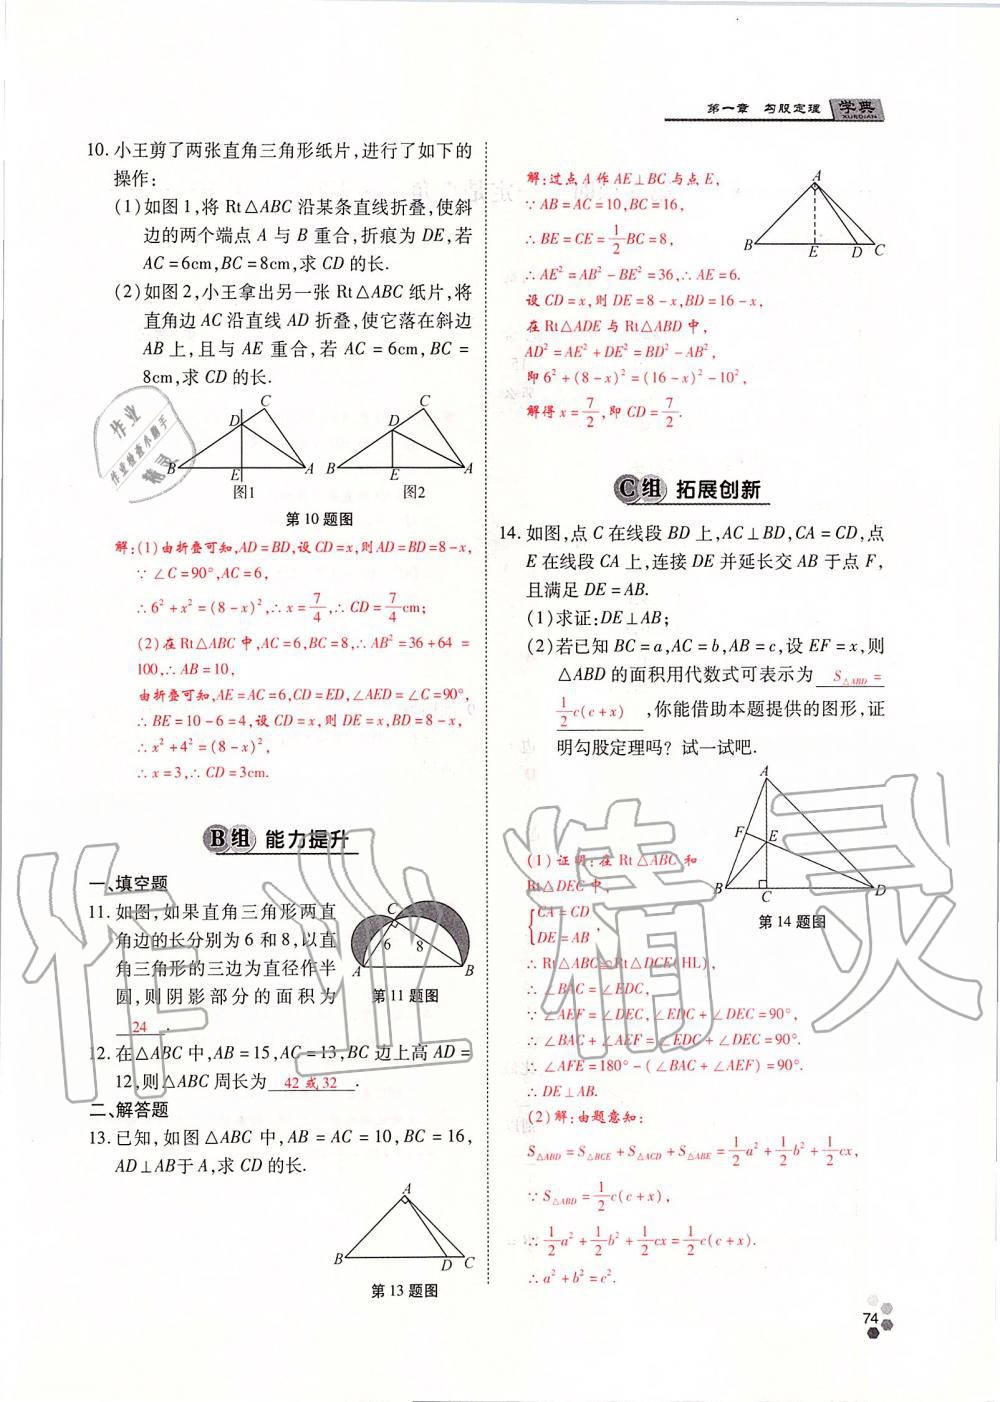 第一章 勾股定理 学典
XUEDIAN
10. 小王剪了两张直角三角形纸片,进行了如下的
操作:
(1)如图1,将 Rt△ABC 沿某条直线折叠,使斜
边的两个端点 A 与 B 重合,折痕为 DE,若
AC=6cm,BC=8cm,求 CD 的长.
(2)如图2,小王拿出另一张 Rt△ABC 纸片,将
直角边 AC 沿直线 AD 折叠,使它落在斜边
AB 上,且与 AE 重合,若 AC=6cm,BC=
8cm,求 CD 的长.
C
D
B E A
图1
C
D
B E A
图2
第10题图
解:(1)由折叠可知,AD=BD,设CD=x,则AD=BD=8-x,
∵∠C=90°,AC=6,
∴6²+x²=(8-x)²,∴x=7/4,∴CD=7/4cm;
(2)在Rt△ABC中,AC=6,BC=8,∴AB²=36+64=
100,∴AB=10,
由折叠可知,AE=AC=6,CD=ED,∠AED=∠C=90°,
∴BE=10-6=4,设CD=x,则DE=x,BD=8-x,
∴x²+4²=(8-x)²,
∴x=3,∴CD=3cm.
B组 能力提升
一、填空题
11. 如图,如果直角三角形两直
角边的长分别为6和8,以直
角三角形的三边为直径作半
圆,则阴影部分的面积为
24 .
C
6 8
A B
第11题图
12. 在△ABC中,AB=15,AC=13,BC边上高AD=
12,则△ABC周长为 42或32 .
二、解答题
13. 已知,如图△ABC中,AB=AC=10,BC=16,
AD⊥AB于A,求CD的长.
A
B D C
第13题图
解:过点A作AE⊥BC与点E,
∵AB=AC=10,BC=16,
∴BE=CE=1/2BC=8,
∴AE²=AB²-BE²=36,∴AE=6.
设CD=x,则DE=8-x,BD=16-x,
在Rt△ADE与Rt△ABD中,
AD²=AE²+DE²=BD²-AB²,
即6²+(8-x)²=(16-x)²-10²,
解得x=7/2,即CD=7/2.
A
B E D C
C组 拓展创新
14. 如图,点C在线段BD上,AC⊥BD,CA=CD,点
E在线段CA上,连接DE并延长交AB于点F,
且满足DE=AB.
(1)求证:DE⊥AB;
(2)若已知BC=a,AC=b,AB=c,设EF=x,则
△ABD的面积用代数式可表示为 S△ABD=
1/2c(c+x) ,你能借助本题提供的图形,证
明勾股定理吗? 试一试吧.
A
F E
B C D
第14题图
(1)证明:在Rt△ABC和
Rt△DEC中,
{CA=CD
DE=AB,
∴Rt△ABC≌Rt△DCE(HL),
∴∠BAC=∠EDC,
∵∠AEF=∠DEC,∠EDC+∠DEC=90°,
∴∠BAC+∠AEF=∠EDC+∠DEC=90°,
∴∠AFE=180°-(∠BAC+∠AEF)=90°,
∴DE⊥AB.
(2)解:由题意知:
S△ABD=S△BCE+S△ACD+S△ABE=1/2a²+1/2b²+1/2cx,
∵S△ABD=1/2c(c+x),
∴1/2a²+1/2b²+1/2cx=1/2c(c+x).
∴a²+b²=c².
74
作业精灵
作业
作业检查小助手
精灵